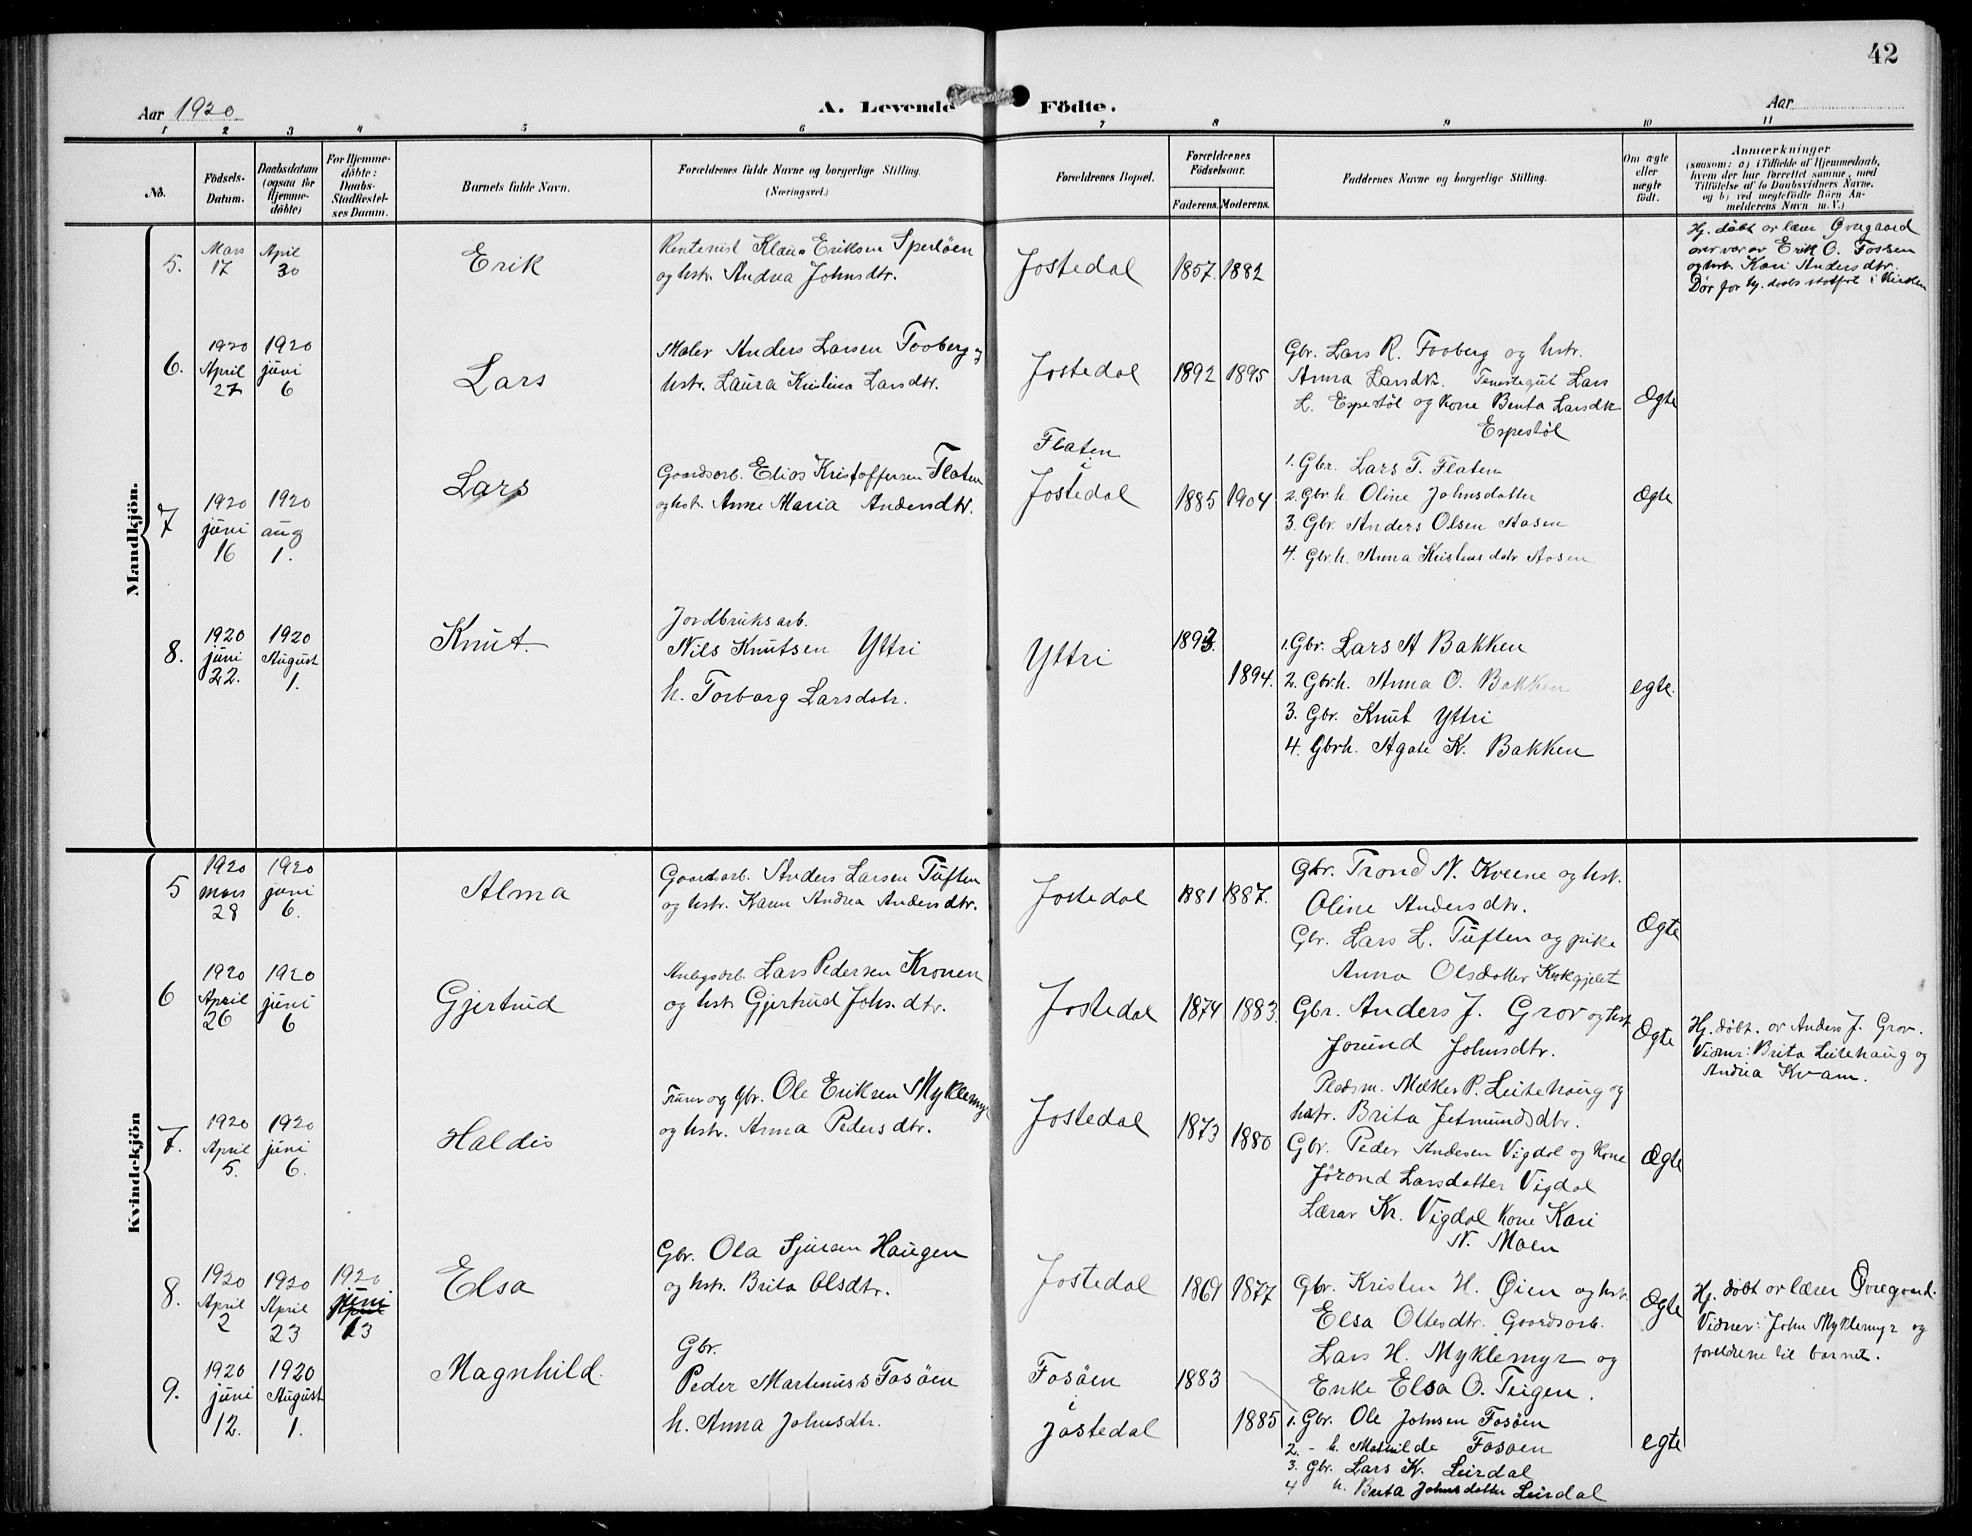 42
Aar 1920
A. Levende Födte.
Aar
1 2 3 4 5 6 7 8 9 10 11
No.
Födsels-Datum.
Daabsdatum (ogsaa for Hjemme-döbte)
For Hjemme-döbte: Daabs-Stadfæstelses Datum.
Barnets fulde Navn.
Forældrenes fulde Navne og borgerlige Stilling. (Næringsvei.)
Forældrenes Bopæl.
Forældrenes Födselsaar.
Faderens. Moderens.
Faddernes Navne og borgerlige Stilling.
Om ægte eller uægte födt.
Anmærkninger
(saasom: a) i Tilfælde af Hjemmedaab, hvem der har forrettet samme, med Tilföielse af to Daabsvidners Navne, og b) ved uægtefödte Börn Anmelderens Navn m. V.)
Mandkjön.
5. Mars 17 April 30
Erik
Rentenist Klaus Eriksen Sperlöen
og hstr. Andrea Johnsdtr.
Jostedal
1857. 1882
Hj. döbt av lærer Øvregaard
over var av Erik O. Fossen
og hstr. Kari Andersdtr.
6. 1920 April 27 1920 juni 6
Lars
Maler Anders Larsen Fooberg og
hstr. Laura Kristina Larsdtr.
Jostedal
1892 1895
Gbr. Lars R. Fooberg og hstr.
Anna Larsdtr. Tenestegut Lars
L. Espestöl og kone Benta Larsdtr
Espestöl
Ægte
7 1920 juni 16 1920 aug 1.
Lars
Gaardsarb. Elias Kristoffersen Flaten
og hst. Anne Maria Andersdtr.
Flaten
i
Jostedal
1885 1904
1. Gbr. Lars T. Flaten
2. Gbr h. Oline Johnsdatter
3. Gbr. Anders Olsen Aasen
4. Gbr.h. Anna Kristensdatr Aasen
Ægte
8. 1920 juni 22. 1920 August 1.
Knut.
Jordbruksarb.
Nils Knutsen Yttri
h. Torborg Larsdotr.
Yttri
1893.
1894.
1. Gbr. Lars A Bakken
2. Gbrh. Anna O. Bakken
3. Gbr. Knut Yttri
4. Gbrh. Agate K. Bakken
egte.
Kvindekjön
5 1920 mars 28 1920 juni 6.
Alma
Gaardsarb. Anders Larsen Tuften
og hstr. Karen Andrea Andersdtr.
Jostedal
1881 1887.
Gbr. Trond N. Kveene og hst.
Oline Andersdtr.
Gbr. Lars L. Tuften og pike
Anna Olsdatter
Ægte
6 1920 April 26 1920 juni 6
Gjertrud
Anlegsarb. Lars Pedersen Kronen
og hstr Gjertrud Johs.dtr.
Jostedal
1874 1883.
Gbr. Anders J. Grov og hst
Jorund Johnsdtr.
Pladsm. Melker P. Leitehaug og
hstr. Brita Jetmundsdtr.
Ægte
Hj. döbt. av Anders J. Grov.
Vidner: Brita Leitehaug og
Andrea Kvam.
7. 1920 April 5. 1920 juni 6.
Haldis
og Gbr. Ole Eriksen Myklemyr
og hstr. Anna Pedersdtr.
Jostedal
1873 1880
Gbr. Peder Andersen Vigdal og kone
Jørond Larsdatter Vigdal
Lærar Kr. Vigdal kone Kari
N. Moen
Ægte
8. 1920 April 2 1920 April 23 1920 juni 13
Elsa
Gbr. Ola Sjursen Haugen
og hstr. Brita Olsdtr.
Jostedal
1869 1877
Gbr. Kristen H. Øien og hstr.
Elsa Ottesdtr. Gaardsarb.
Lars H. Myklemyr og
Enke Elsa O. Teigen.
Ægte
Hj. döbt av lærer Øvregaard.
Vidner: John Myklemyr og
foreldrene til barnet.
9. 1920 juni 12. 1920 August 1.
Magnhild.
Gbr.
Peder Martinus s Fosöen
h. Anna Johnsdtr.
Fosöen
i
Jostedal
1883
1885
1. Gbr. Ole Johnsen Fosöen
2. - h. Mathilde Fosöen
3. Gbr. Lars K. Leirdal
4 h. Brita Johnsdatter Leirdal
egte